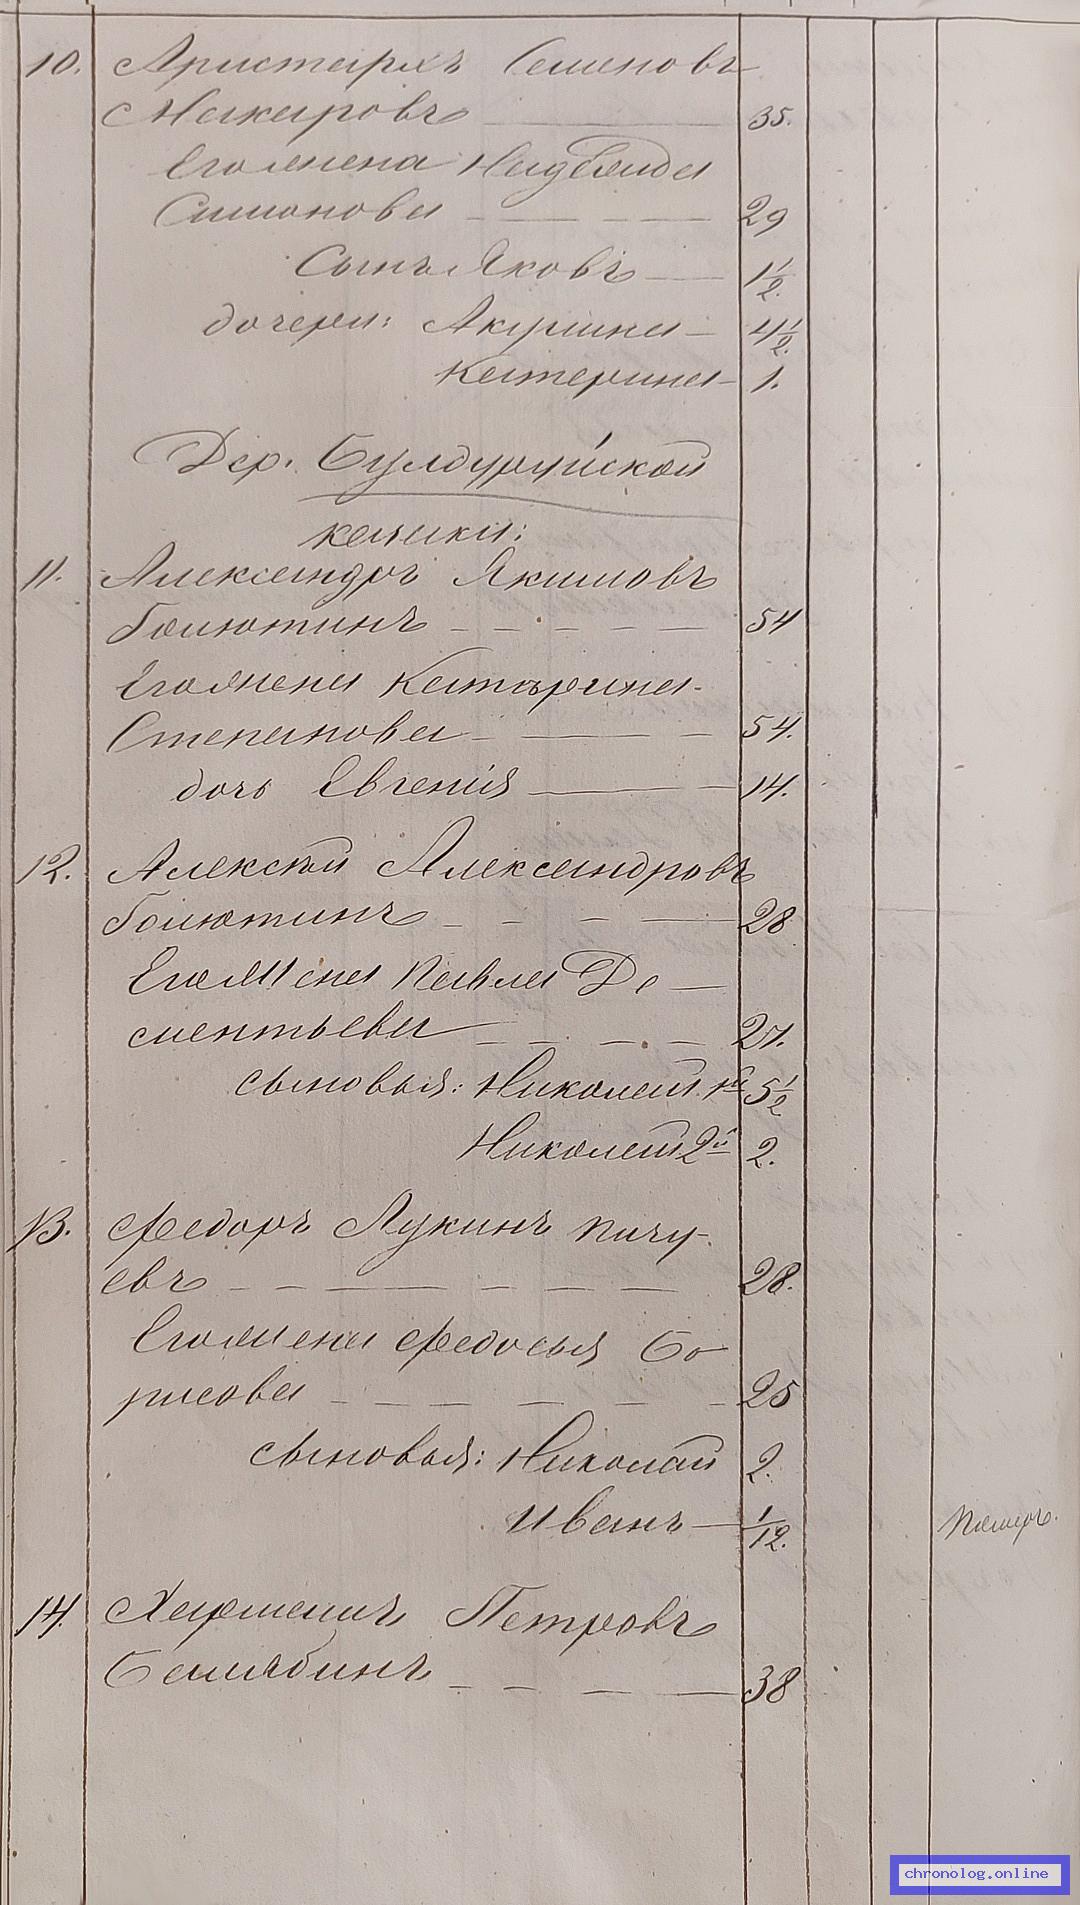 10. Аристархъ Семеновъ
Макаровъ 35.
Его жена Надежда
Симонова 29
Сынъ Яковъ 1 1/2.
дочери: Акулина 4 1/2.
Катерина 1.
Дер. Булдуруйской
казаки:
11. Александръ Якимовъ
54
Его жена Катерина
Степанова 54.
дочь Евгенія 14.
12. Алексѣй Александровъ
28
Его жена Павла Де
ментьева 27.
сыновья: Николай 1й 5 1/2
Николай 2й 2.
13. Федоръ Лукинъ Пичу-
евъ 28.
Его жена Федосья Бо
рисова 25
сыновья: Николай 2.
Иванъ 1/12. Померъ.
14. Петровъ
38
chronolog.online